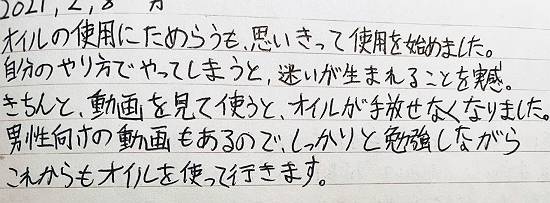 2021, 2, 8 月
オイルの使用にためらうも、思いきって使用を始めました。
自分のやり方でやってしまうと、迷いが生まれることを実感。
きちんと、動画を見て使うと、オイルが手放せなくなりました。
男性向けの動画もあるので、しっかりと勉強しながら
これからもオイルを使って行きます。